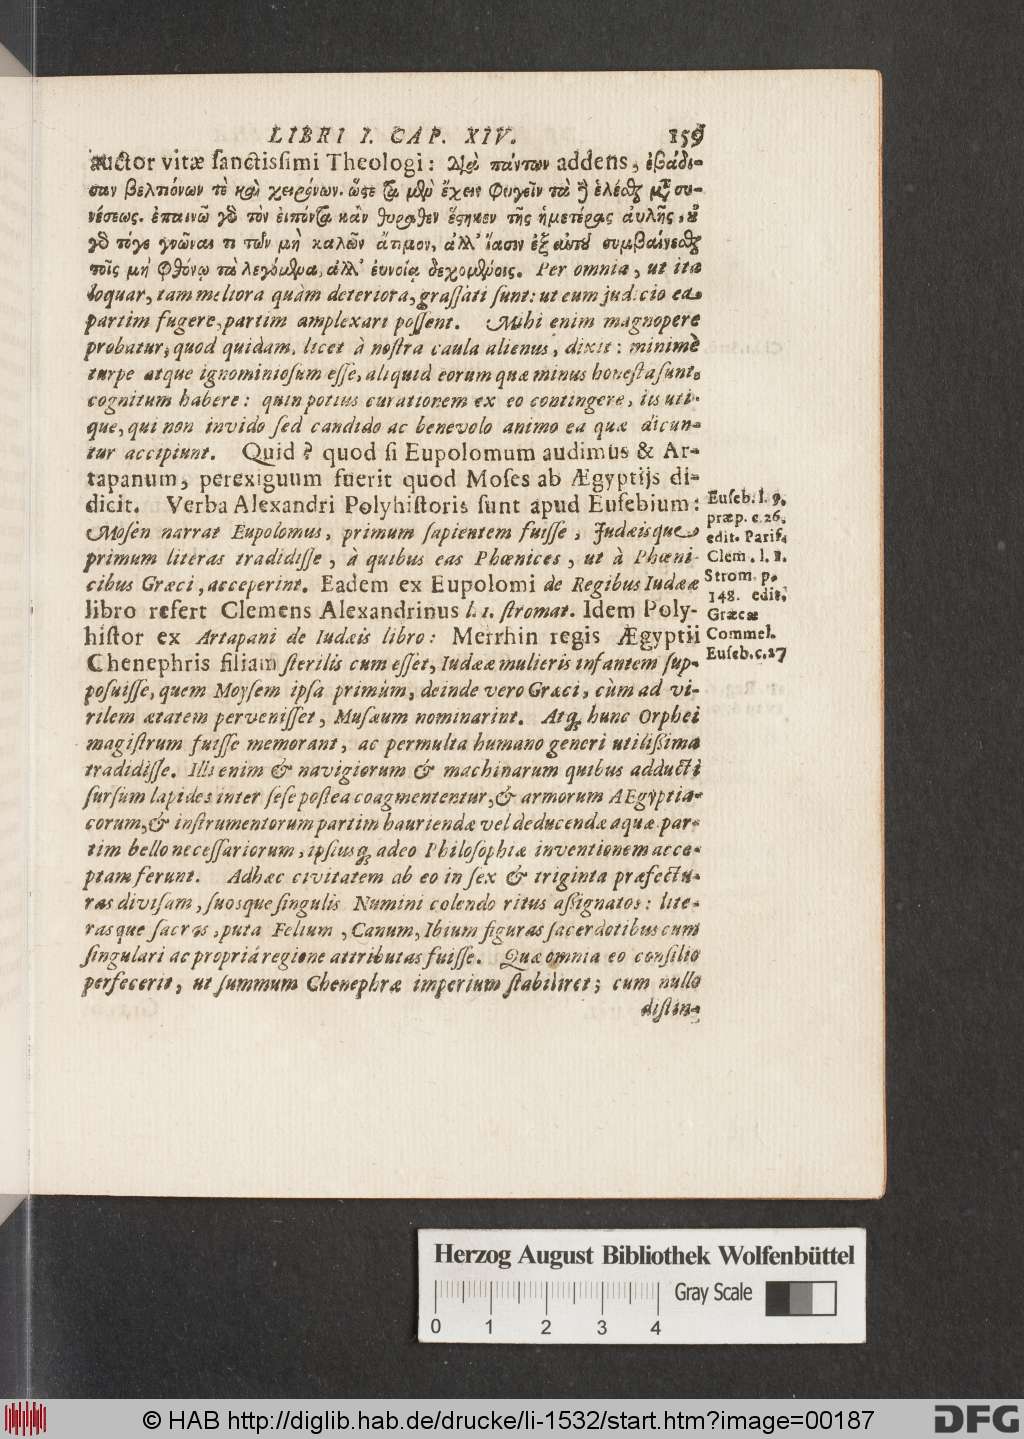 LIBRI I. CAP. XIV. 159
auctor vitæ sanctissimi Theologi: διὰ πάντων addens, ἐβάδι-
σαν βελτιόνων τὲ καὶ χειρόνων. ὥστε τὰ μὲν ἔχειν φυγεῖν τὰ ἢ ἑλέσθαι μετὰ συ-
νέσεως. ἐπαινῶ γὸ τὸν εἰπόντα κἂν θύραθεν ἕστηκεν τῆς ἡμετέρας αὐλῆς, οὐ
γὸ τόγε γνῶναι τι τῶν μὴ καλῶν ἄτιμον, ἀλλ' ἴασιν ἐξ αὐτοῦ συμβαίνεσθαι
τοῖς μὴ φθόνῳ τὰ λεγόμενα, ἀλλ' ἐυνοίᾳ δεχομένοις. Per omnia, ut ita
loquar, tam meliora quàm deteriora, graſſati ſunt: ut eum judicio ea
partim fugere, partim amplexari poſſent. Mihi enim magnopere
probatur, quod quidam, licet à noſtra caula alienus, dixit: minimè
turpe atque ignominioſum eſſe, aliquid eorum quæ minus honeſta ſunt,
cognitum habere: quin potius curationem ex eo contingere, iis uti-
que, qui non invido ſed candido ac benevolo animo ea quæ dicun-
tur accipiunt. Quid? quod ſi Eupolomum audimus & Ar-
tapanum, perexiguum fuerit quod Moſes ab Ægyptijs di-
dicit. Verba Alexandri Polyhiſtoris ſunt apud Euſebium:
Moſen narrat Eupolomus, primum ſapientem fuiſſe, Judæisque
primum literas tradidiſſe, à quibus eas Phœnices, ut à Phœni-
cibus Græci, acceperint. Eadem ex Eupolomi de Regibus Iudææ
libro refert Clemens Alexandrinus l. 1. ſtromat. Idem Poly-
hiſtor ex Artapani de Iudæis libro: Merrhin regis Ægyptii
Chenephris filiam ſterilis cum eſſet, Iudææ mulieris infantem ſup-
poſuiſſe, quem Moyſem ipſa primùm, deinde vero Græci, cùm ad vi-
rilem ætatem perveniſſet, Muſæum nominarint. Atq; hunc Orphei
magiſtrum fuiſſe memorant, ac permulta humano generi utilißima
tradidiſſe. Illi enim & navigiorum & machinarum quibus adducti
ſurſum lapides inter ſeſe poſtea coagmententur, & armorum AEgyptia-
corum, & inſtrumentorum partim hauriendæ vel deducendæ aquæ par-
tim bello neceſſariorum, ipſiusq; adeo Philoſophiæ inventionem acce-
ptam ferunt. Adhæc civitatem ab eo in ſex & triginta præfectu-
ras diviſam, ſuosque ſingulis Numini colendo ritus aßignatos: lite-
rasque ſacras, puta Felium, Canum, Ibium figuras ſacerdotibus cum
ſingulari ac propriá regione attributas fuiſſe. Quæ omnia eo conſilio
perfecerit, ut ſummum Chenephræ imperium ſtabiliret; cum nullo
diſtin-
Euſeb. l. 9.
præp. c. 26.
edit. Pariſ.
Clem. l. 1.
Strom. p.
148. edit.
Græcæ
Commel.
Euſeb. c. 27
Herzog August Bibliothek Wolfenbüttel
Gray Scale
0 1 2 3 4
© HAB http://diglib.hab.de/drucke/li-1532/start.htm?image=00187
DFG